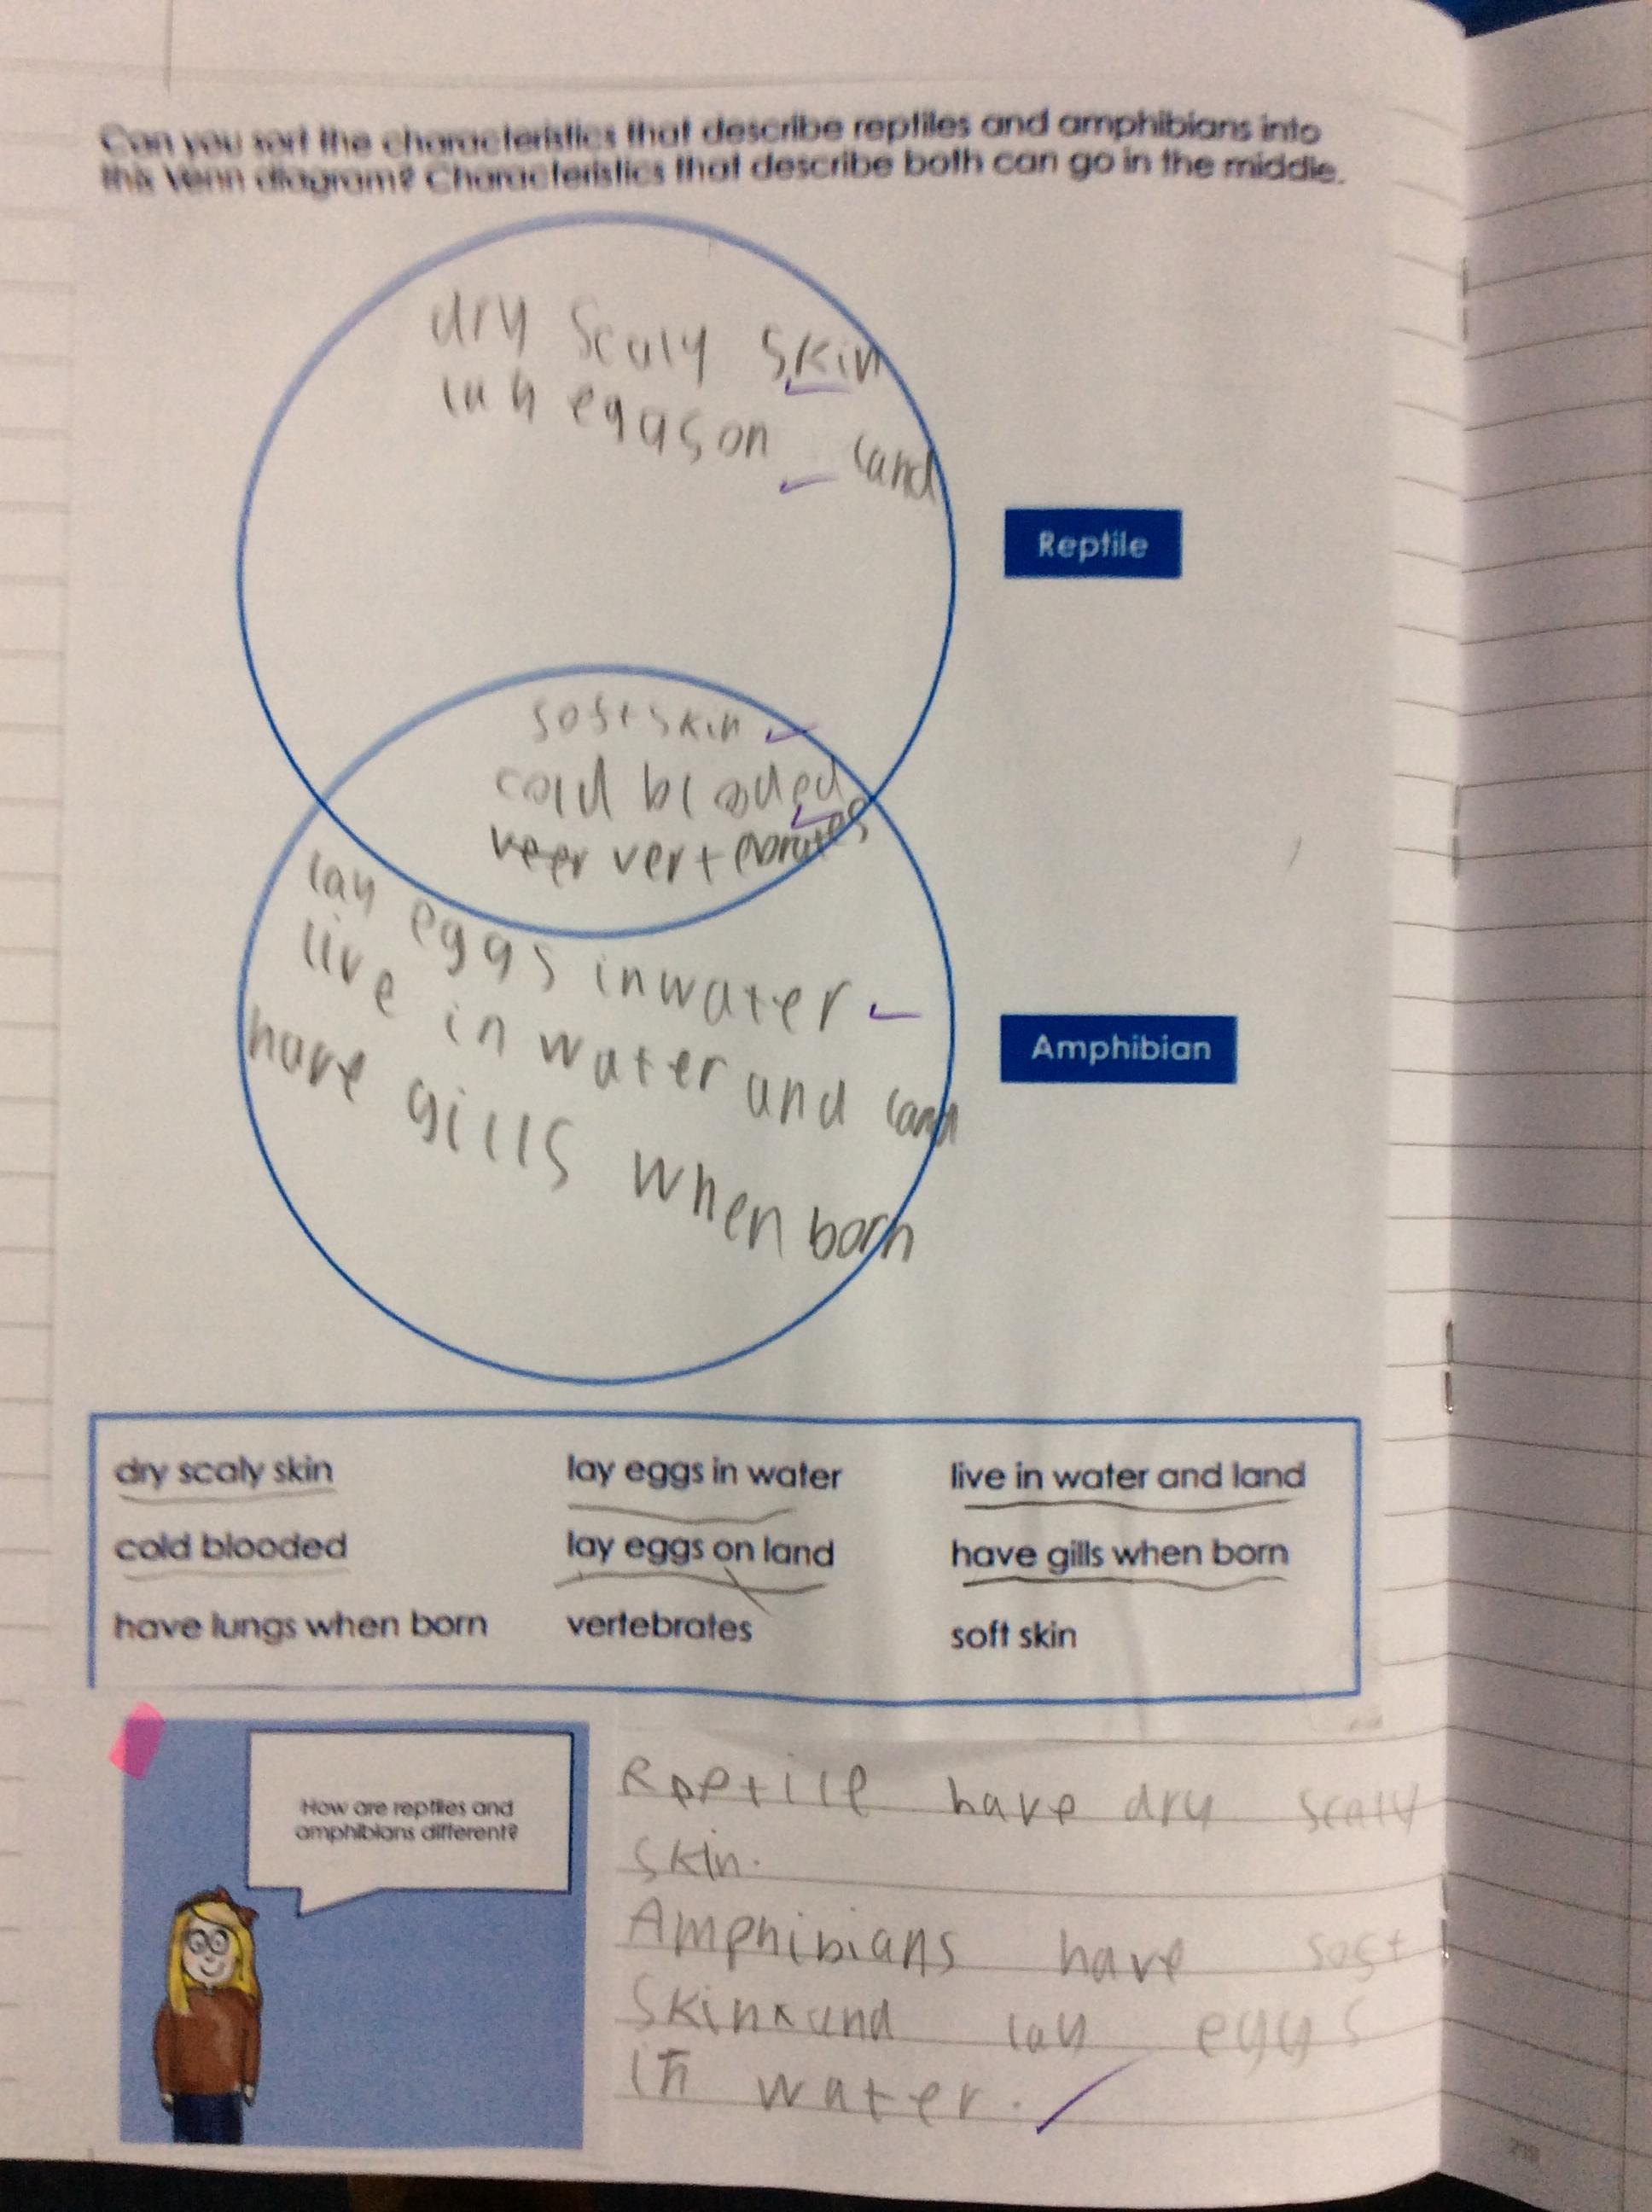 Can you sort the characteristics that describe reptiles and amphibians into
this Venn diagram? Characteristics that describe both can go in the middle.
dry scaly skin
lay eggs on land
Reptile
soft skin
cold blooded
veer vertebrates
lay eggs in water
live in water and land
have gills when born
Amphibian
dry scaly skin lay eggs in water live in water and land
cold blooded lay eggs on land have gills when born
have lungs when born vertebrates soft skin
How are reptiles and
amphibians different?
Reptile have dry scaly
skin.
Amphibians have soft
skin and lay eggs
in water.